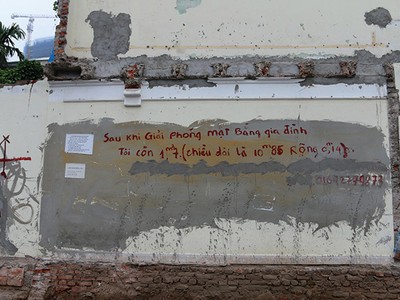 Sau khi Giải phóng mặt Bằng gia đình
Tôi còn 1m²7.(chiều dài là 10m85 Rộng 0m14).